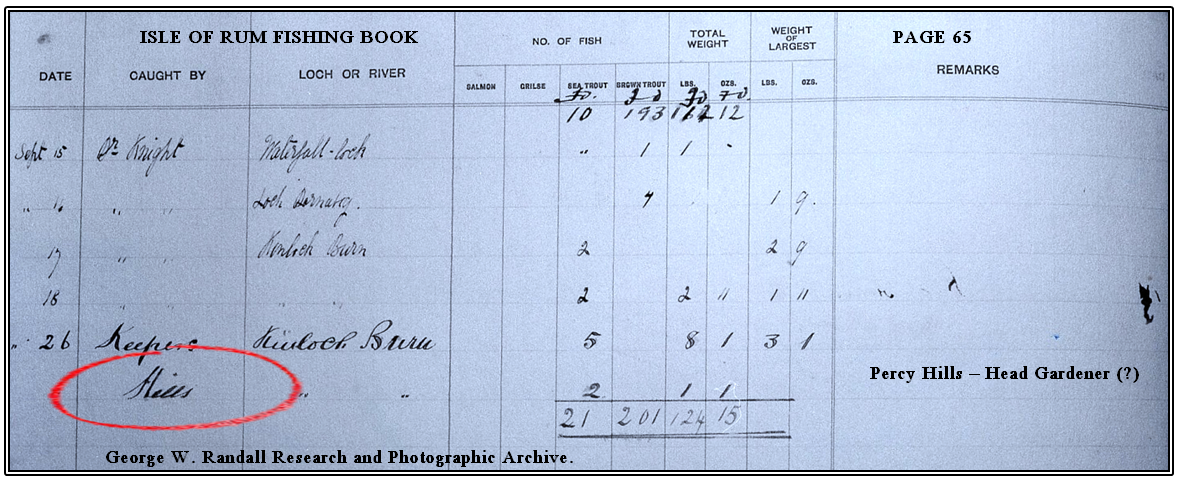 ISLE OF RUM FISHING BOOK PAGE 65
DATE CAUGHT BY LOCH OR RIVER NO. OF FISH TOTAL WEIGHT WEIGHT OF LARGEST REMARKS
SALMON GRILSE SEA TROUT BROWN TROUT LBS. OZS. LBS. OZS.
10 193 12
Sept 15 Dr Knight Waterfall-loch " 1 1 -
" 16 " " Loch 7 1 9.
17 " " Kinloch Burn 2 2 9
18 " " " " 2 2 " 1 "
" 26 Keepers Kinloch Burn 5 8 1 3 1
Hills " " 2 1 1
Percy Hills – Head Gardener (?)
21 201 124 15
George W. Randall Research and Photographic Archive.